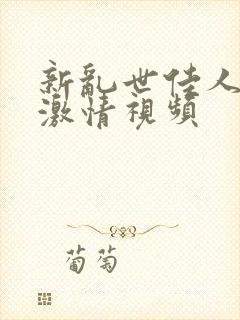 新亂世佳人
激情視頻
葡萄